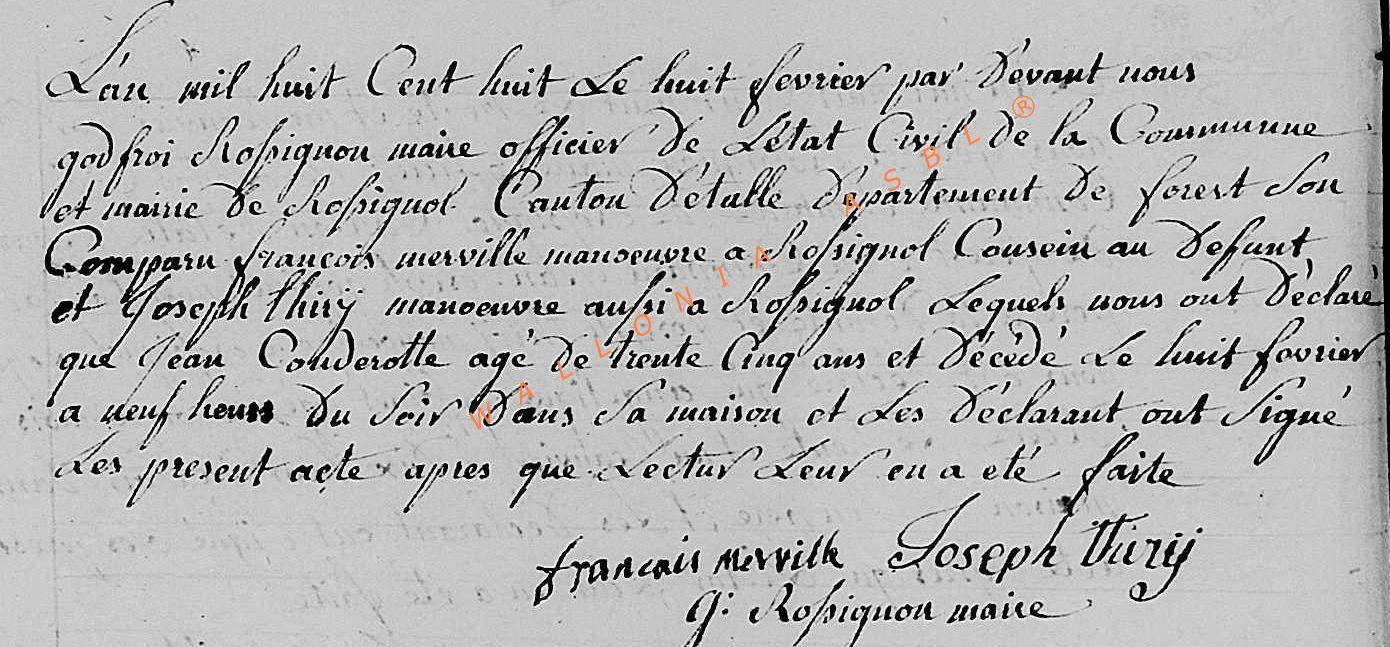 L'an mil huit Cent huit Le huit fevrier par Dévant nous
godfroi Rossignon maire officier De L'état Civil de la Communne
et mairie De Rossignol Canton D'étalle Département De forest Son
Comparu francois merville manoeuvre a Rossignol Cousein au Defunt
et Joseph thirÿ manoeuvre aussi a Rossignol Lequels nous ont Déclaré
que Jean Conderotte agé De trente Cinq ans et Décédé Le huit fevrier
a neuf heurs Du Soir Dans Sa maison et Les Déclarant ont Signé
Les present acte apres que Lectur Leur en a eté faite
francais merville Joseph thirÿ
g: Rossignon maire
WALLONIA ASBL ®